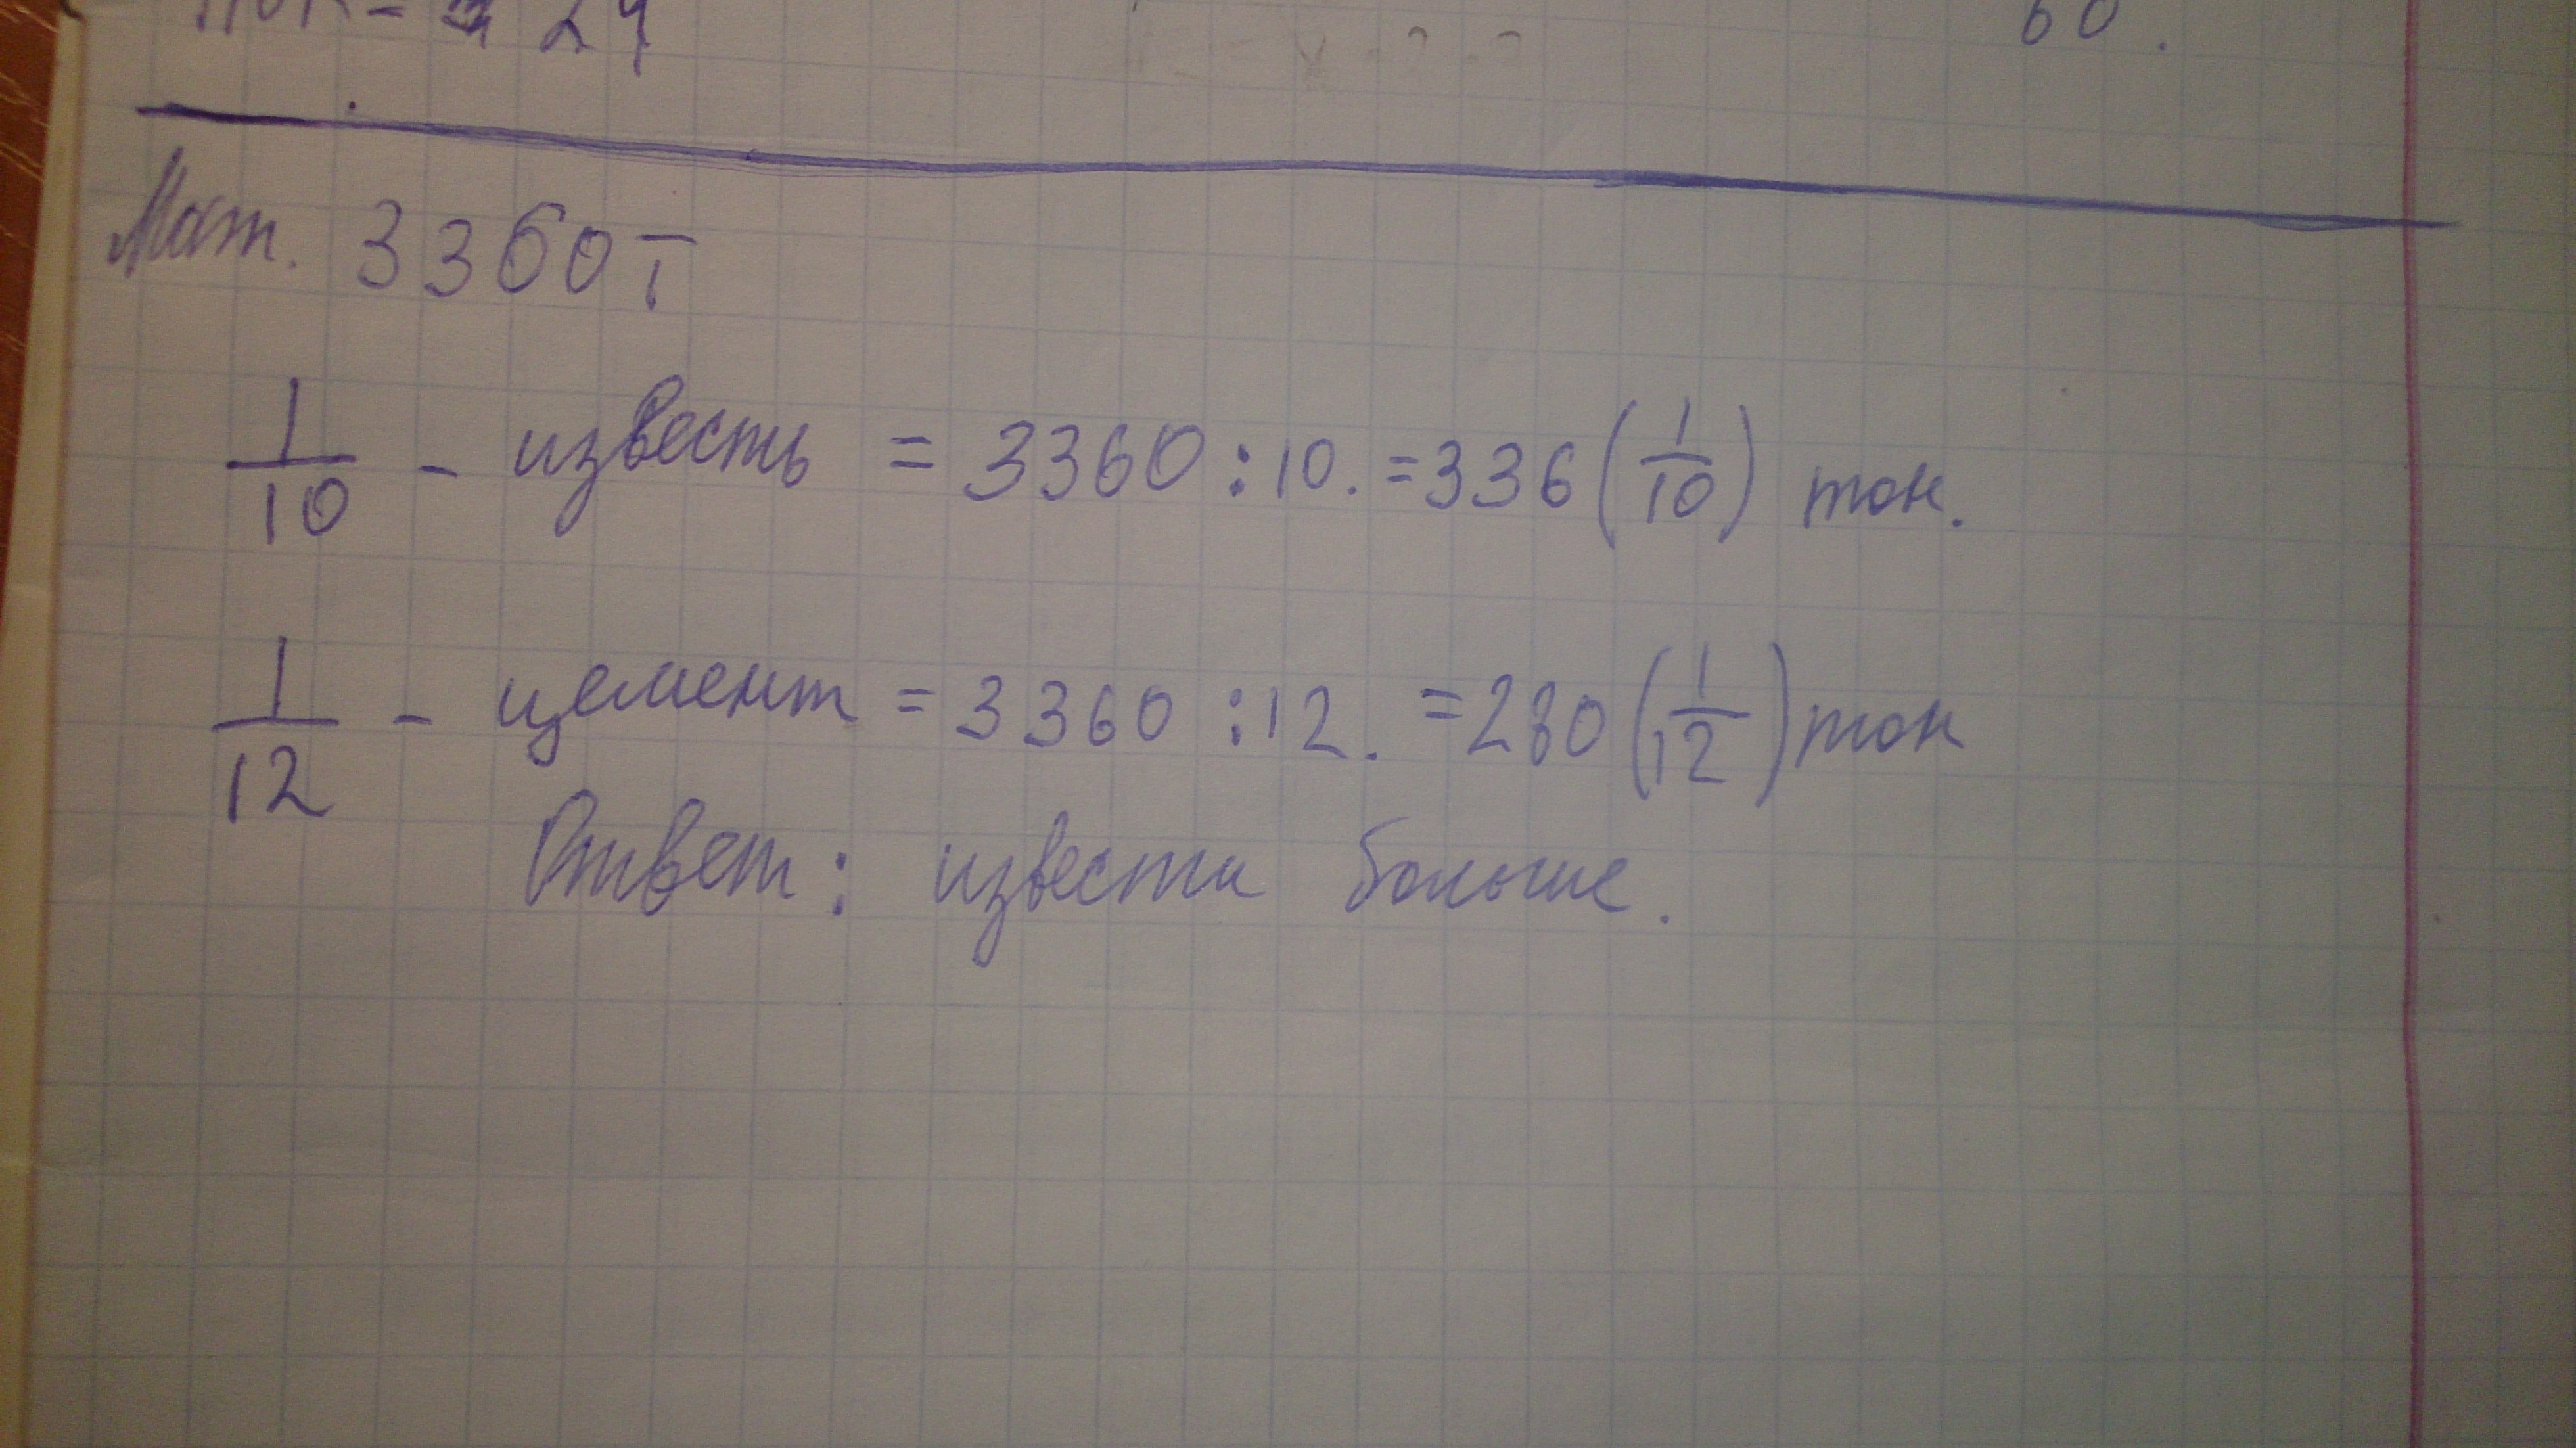 НОК = 24
60.
Мат. 3360 т
1/10 - известь = 3360 : 10. = 336 (1/10) тон.
1/12 - цемент = 3360 : 12. = 280 (1/12) тон
Ответ: извести больше.